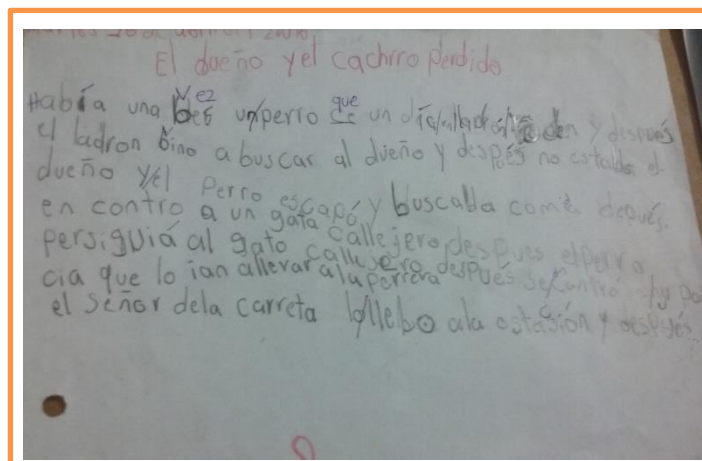 El dueño y el cachiro Perdido
Vez que
Había una bes un perro ce un día ladron y después
el ladron bino a buscar al dueño y despés no estaba el
dueño y el Perro escapó y buscaba comé dequés.
en contro a un gata callejero despues el perro
persiguiá al gato callejero después se contró
cia que lo ian allevar ala perrera
el señor dela carreta lo llebo ala estasión y después